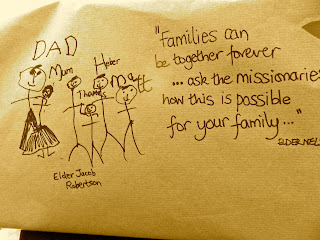 DAD
Mum
Heber
Matt
Thomas
Elder Jacob
Robertson
"Families can
be together forever
... ask the missionaries
how this is possible
for your family..."